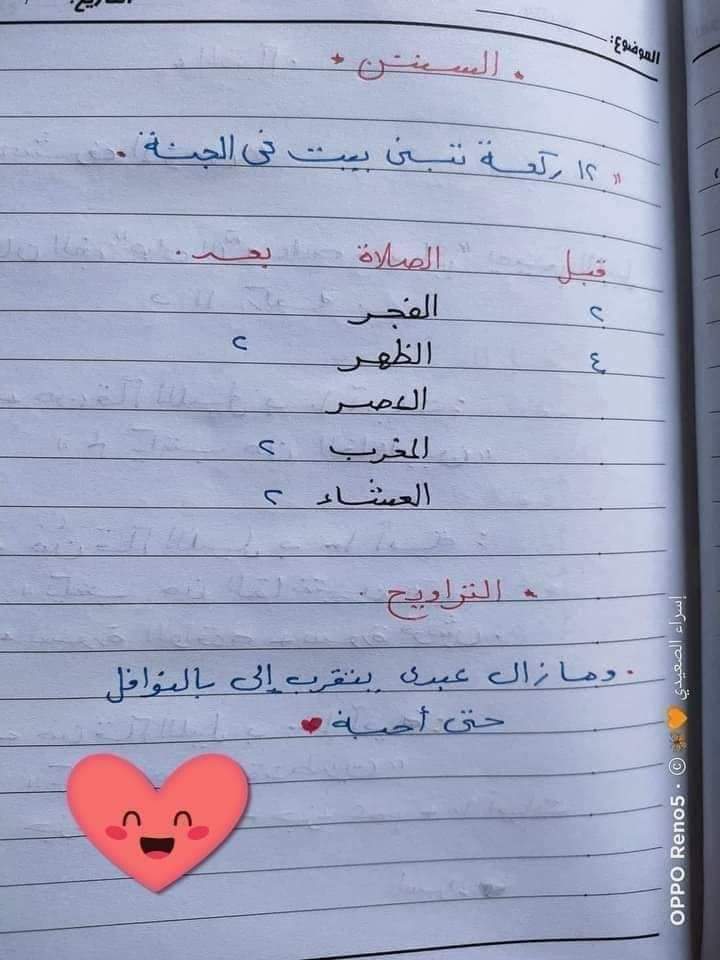 الموضوع:
* السنن *
" ١٢ ركعة تبنى بيت فى الجنة.
قبل الصلاة بعد.
٢ الفجر
٤ الظهر ٢
العصر
المغرب ٢
العشاء ٢
* التراويح
. وما زال عبدى يتقرب إلى بالنوافل
حتى أحبة
إسراء الصعيدي
OPPO Reno5 · ©